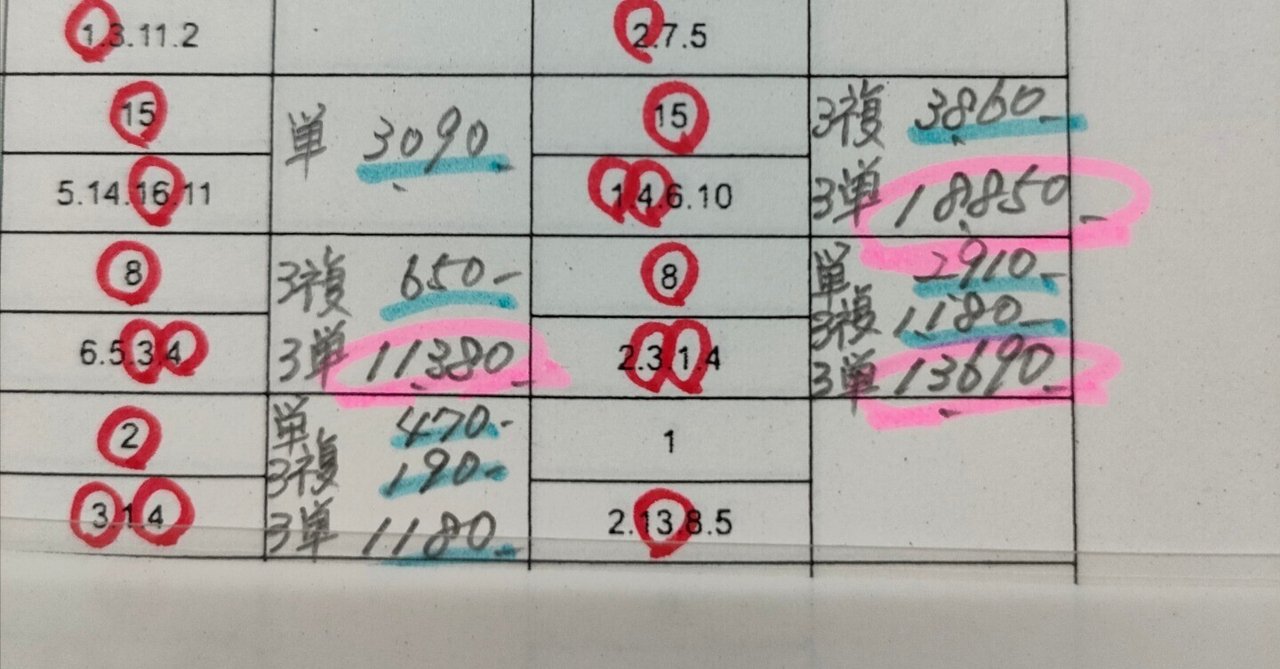 1.3.11.2
2.7.5
15
単 3090
15
3複 3860-
5.14.16.11
1.4.6.10
3単 18850-
8
3複 650-
8
単 2910-
3複 1180-
6.5.3.4
3単 11380-
2.3.1.4
3単 13690-
2
単 470-
3複 190-
1
3.1.4
3単 1180-
2.13.8.5